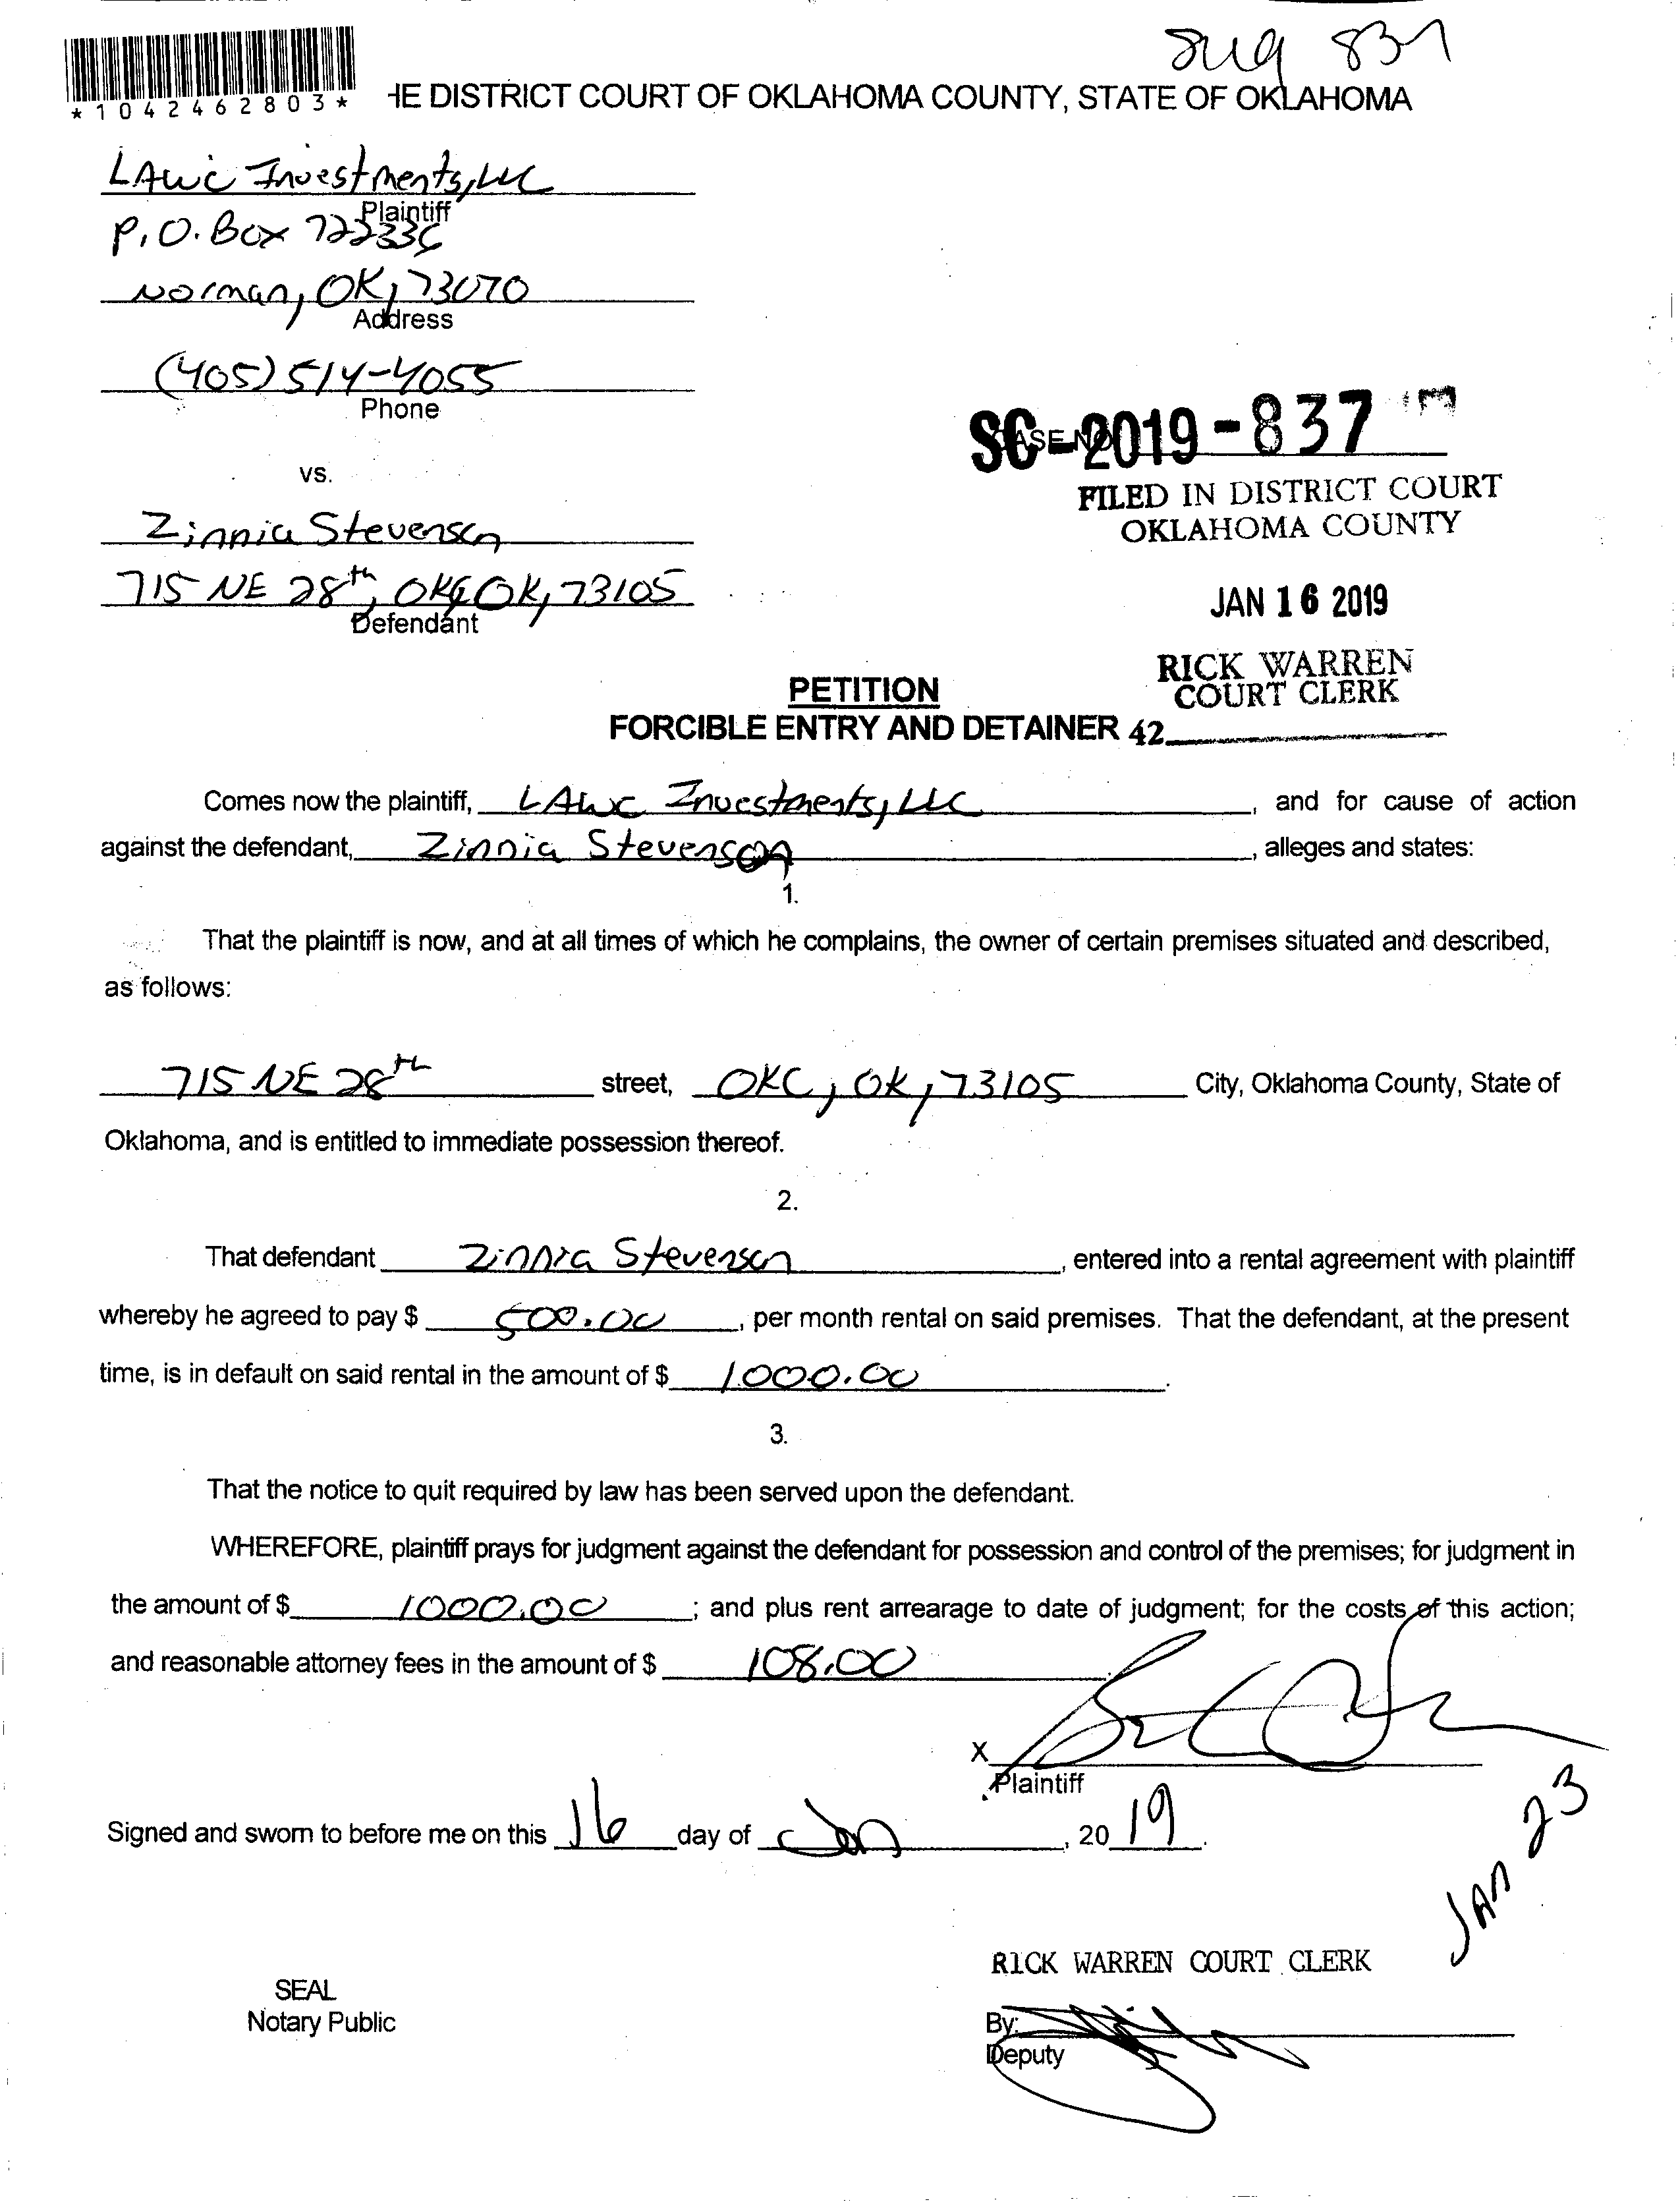 831
*1042462803*
HE DISTRICT COURT OF OKLAHOMA COUNTY, STATE OF OKLAHOMA
LAWC Investments, LLC
Plaintiff
P.O. Box 722336
Norman, OK, 73070
Address
(405) 514-4055
Phone
vs.
CASE NO.
SC-2019-837
FILED IN DISTRICT COURT
OKLAHOMA COUNTY
Zinnia Stevenson
715 NE 28th, OKC OK, 73105
Defendant
JAN 16 2019
RICK WARREN
COURT CLERK
PETITION
FORCIBLE ENTRY AND DETAINER 42
Comes now the plaintiff, LAWC Investments, LLC, and for cause of action
against the defendant, Zinnia Stevenson, alleges and states:
1.
That the plaintiff is now, and at all times of which he complains, the owner of certain premises situated and described,
as follows:
715 NE 28th street, OKC, OK, 73105 City, Oklahoma County, State of
Oklahoma, and is entitled to immediate possession thereof.
2.
That defendant Zinnia Stevenson, entered into a rental agreement with plaintiff
whereby he agreed to pay $ 500.00, per month rental on said premises. That the defendant, at the present
time, is in default on said rental in the amount of $ 1000.00.
3.
That the notice to quit required by law has been served upon the defendant.
WHEREFORE, plaintiff prays for judgment against the defendant for possession and control of the premises; for judgment in
the amount of $ 1000.00; and plus rent arrearage to date of judgment; for the costs of this action;
and reasonable attorney fees in the amount of $ 108.00
X
Plaintiff
Signed and sworn to before me on this 16 day of Jan, 2019.
JAN 23
RICK WARREN COURT CLERK
SEAL
Notary Public
By:
Deputy